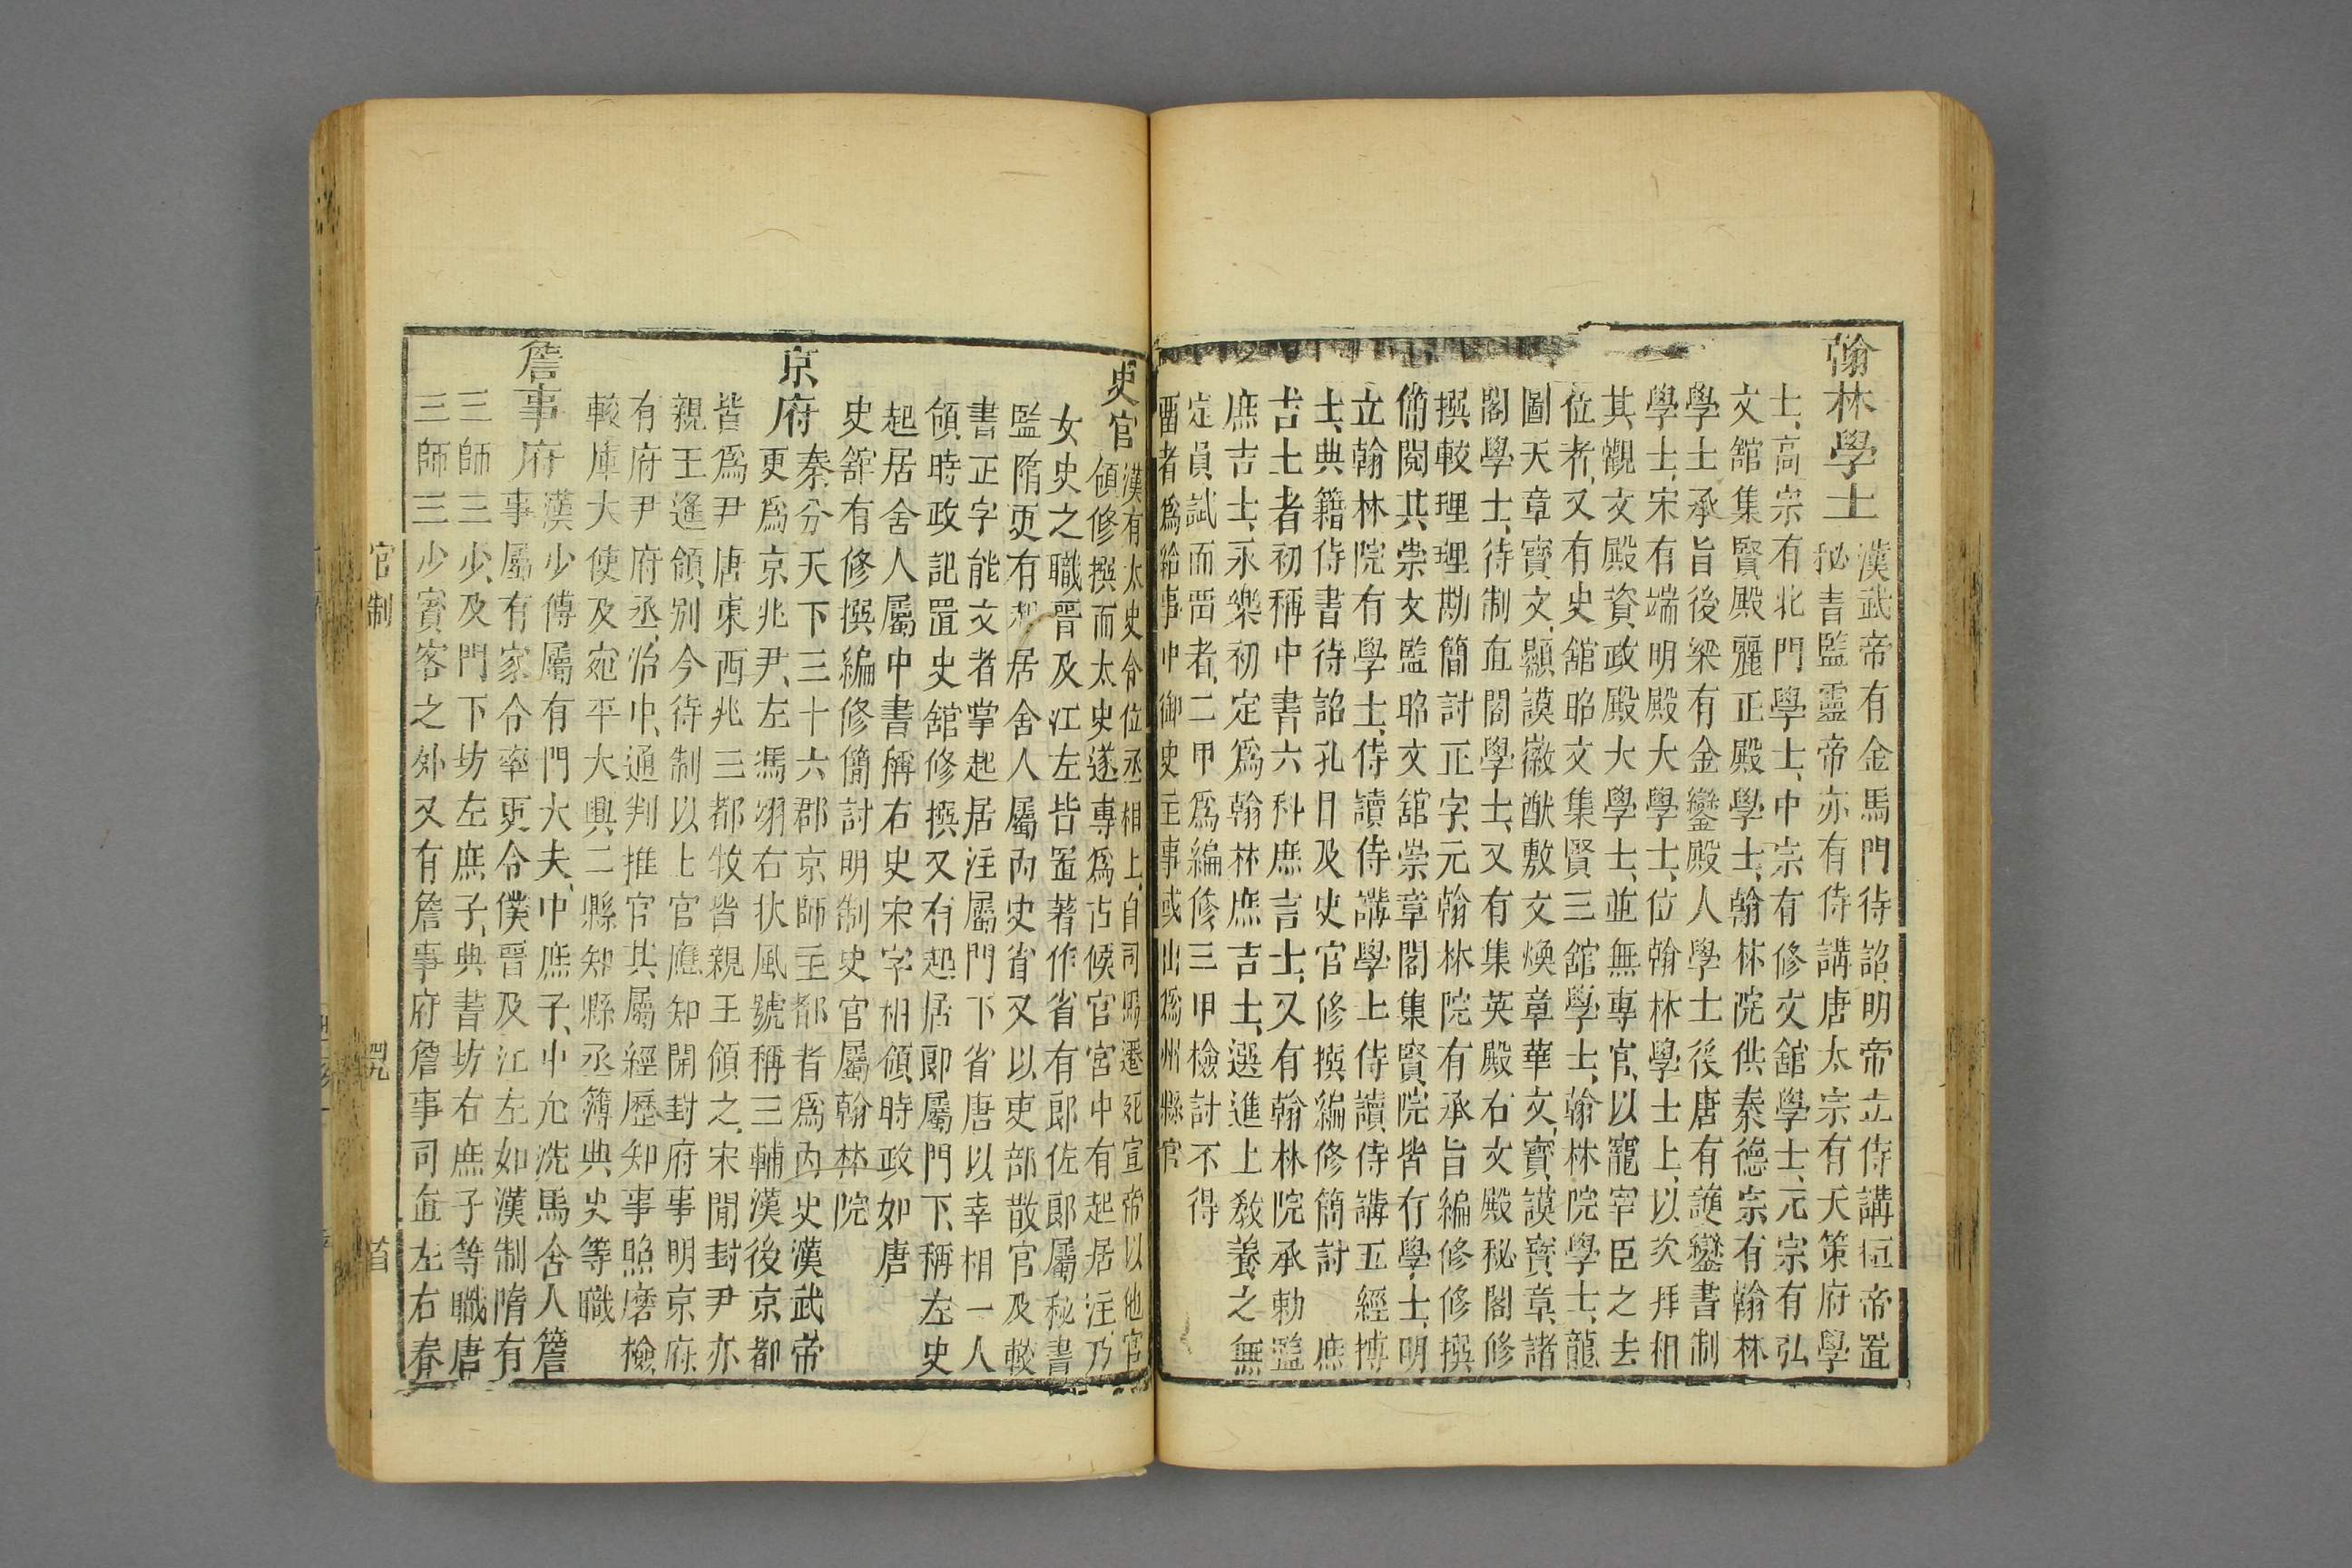 翰林學士
漢武帝有金馬門待詔明帝立侍講桓帝置
秘書監靈帝亦有侍講唐太宗有天策府學
士高宗有北門學士中宗有修文舘學士元宗有弘
文舘集賢殿麗正殿學士翰林院供奉德宗有翰林
學士承旨後梁有金鑾殿人學士後唐有護鑾書制
學士宋有端明殿大學士位翰林學士上以次拜相
其觀文殿資政殿大學士並無專官以寵宰臣之去
位者又有史舘昭文集賢三舘學士翰林院學士龍
圖天章寶文顯謨徽猷敷文煥章華文寶謨寶章諸
閣學士待制直閣學士又有集英殿右文殿秘閣修
撰較理理勘簡討正字元翰林院有承旨編修修撰
偹閱其崇文監昭文舘崇章閣集賢院皆有學士明
立翰林院有學士侍讀侍講學上侍讀侍講五經博
士典籍侍書待詔孔目及史官修撰編修簡討 庶
吉士者初稱中書六科庶吉士又有翰林院承勅監
庶吉士永樂初定爲翰林庶吉士選進上敎養之無
定員試而畱者二甲爲編修三甲檢討不得
畱者爲給事中御史主事或出爲州縣官
史官
漢有太史令位丞相上自司馬遷死宣帝以他官
領修撰而太史遂專爲占候官宮中有起居注乃
女史之職晋及江左皆置著作省有郎佐郎屬秘書
監隋更有起居舍人屬內史省又以吏部散官及較
書正字能文者掌起居注屬門下省唐以幸相一人
領時政記置史舘修撰又有起居郎屬門下稱左史
起居舍人屬中書稱右史宋宰相領時政如唐
史舘有修撰編修簡討明制史官屬翰林院
京府
秦分天下三十六郡京師主都者爲內史漢武帝
更爲京兆尹左馮翊右扶風號稱三輔漢後京都
皆爲尹唐東西兆三都牧皆親王領之宋開封尹亦
親王遙領別今待制以上官應知開封府事明京府
有府尹府丞治中通判推官其屬經歷知事照磨檢
較庫大使及宛平大興二縣知縣丞簿典史等職
詹事府
漢少傅屬有門大夫中庶子中允洗馬舍人詹
事屬有家令率更令僕晋及江左如漢制隋有
三師三少及門下坊左庶子典書坊右庶子等職唐
三師三少賓客之外又有詹事府詹事司直左右春
官制